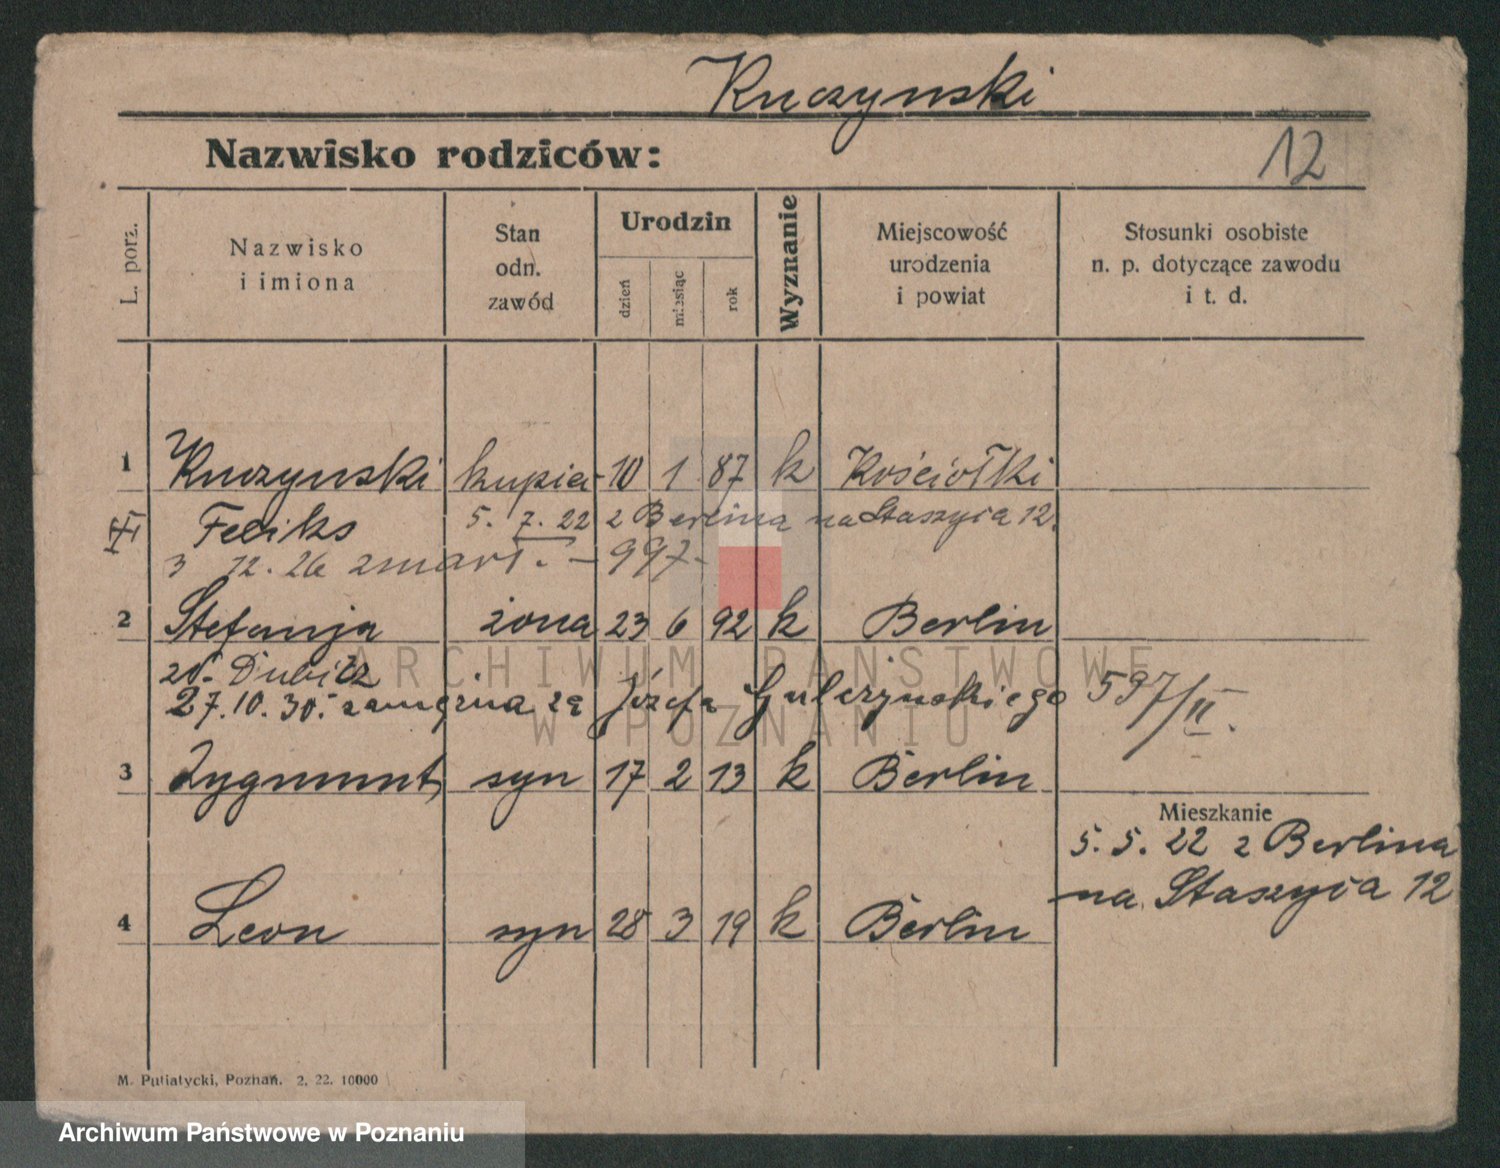 Kuczynski
Nazwisko rodziców:
12
L. porz.
Nazwisko i imiona
Stan odn. zawód
Urodzin
dzień
miesiąc
rok
Wyznanie
Miejscowość urodzenia i powiat
Stosunki osobiste n. p. dotyczące zawodu i t. d.
1 Kuczynski kupiec 10 1 87 k Kościołki
Feliks 5. 7. 22 z Berlina na Staszyca 12.
3 12. 26 zmarł. – 997 –
2 Stefanja żona 23 6 92 k Berlin
z d. Dubisz
27.10.30. zamężna za Józefa Gulczyńskiego 597/II.
3 Zygmunt syn 17 2 13 k Berlin
Mieszkanie
5. 5. 22 z Berlina
na Staszyca 12
4 Leon syn 28 3 19 k Berlin
M. Putiatycki, Poznań. 2. 22. 10000
ARCHIWUM PAŃSTWOWE
W POZNANIU
Archiwum Państwowe w Poznaniu